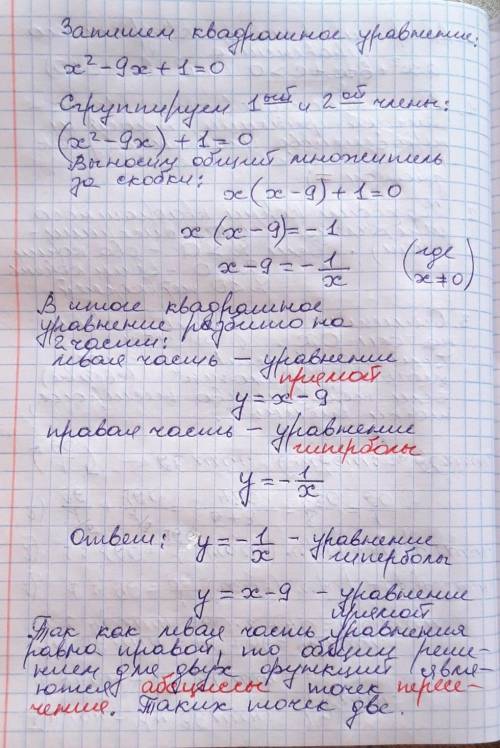 Запишем квадратное уравнение:
x² - 9x + 1 = 0
Сгруппируем 1ый и 2ой члены:
(x² - 9x) + 1 = 0
Выносим общий множитель
за скобки:
x(x - 9) + 1 = 0
x(x - 9) = -1
x - 9 = -1/x (где x ≠ 0)
В итоге квадратное
уравнение разбито на
2 части:
левая часть - уравнение
прямой
y = x - 9
правая часть - уравнение
гиперболы
y = -1/x
Ответ: y = -1/x - уравнение
гиперболы
y = x - 9 - уравнение
прямой
Так как левая часть уравнения
равна правой, то общим реше-
нием для двух функций явля-
ются абсциссы точек пересе-
чения. Таких точек две.